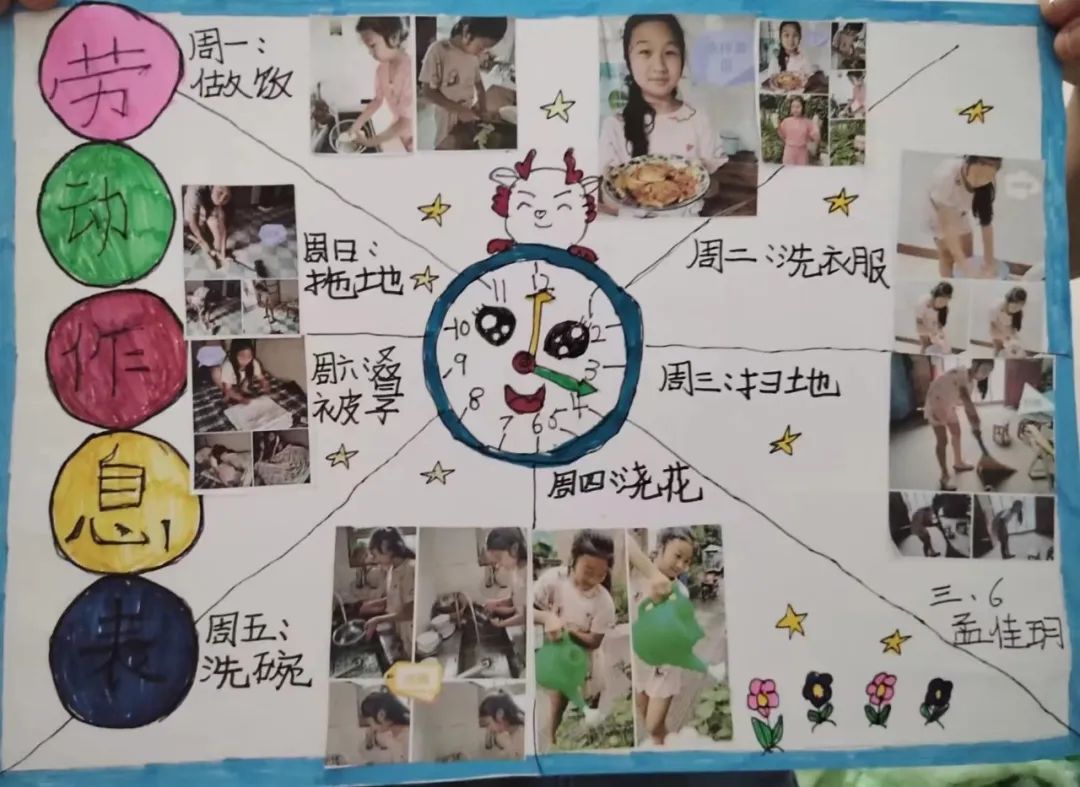 劳动作息表
周一：
做饭
周日：
拖地
周二：洗衣服
周六：叠
被子
周三：扫地
周四：浇花
周五：
洗碗
12
11
10
9
8
7
6
5
4
3
2
三、6
孟佳玥